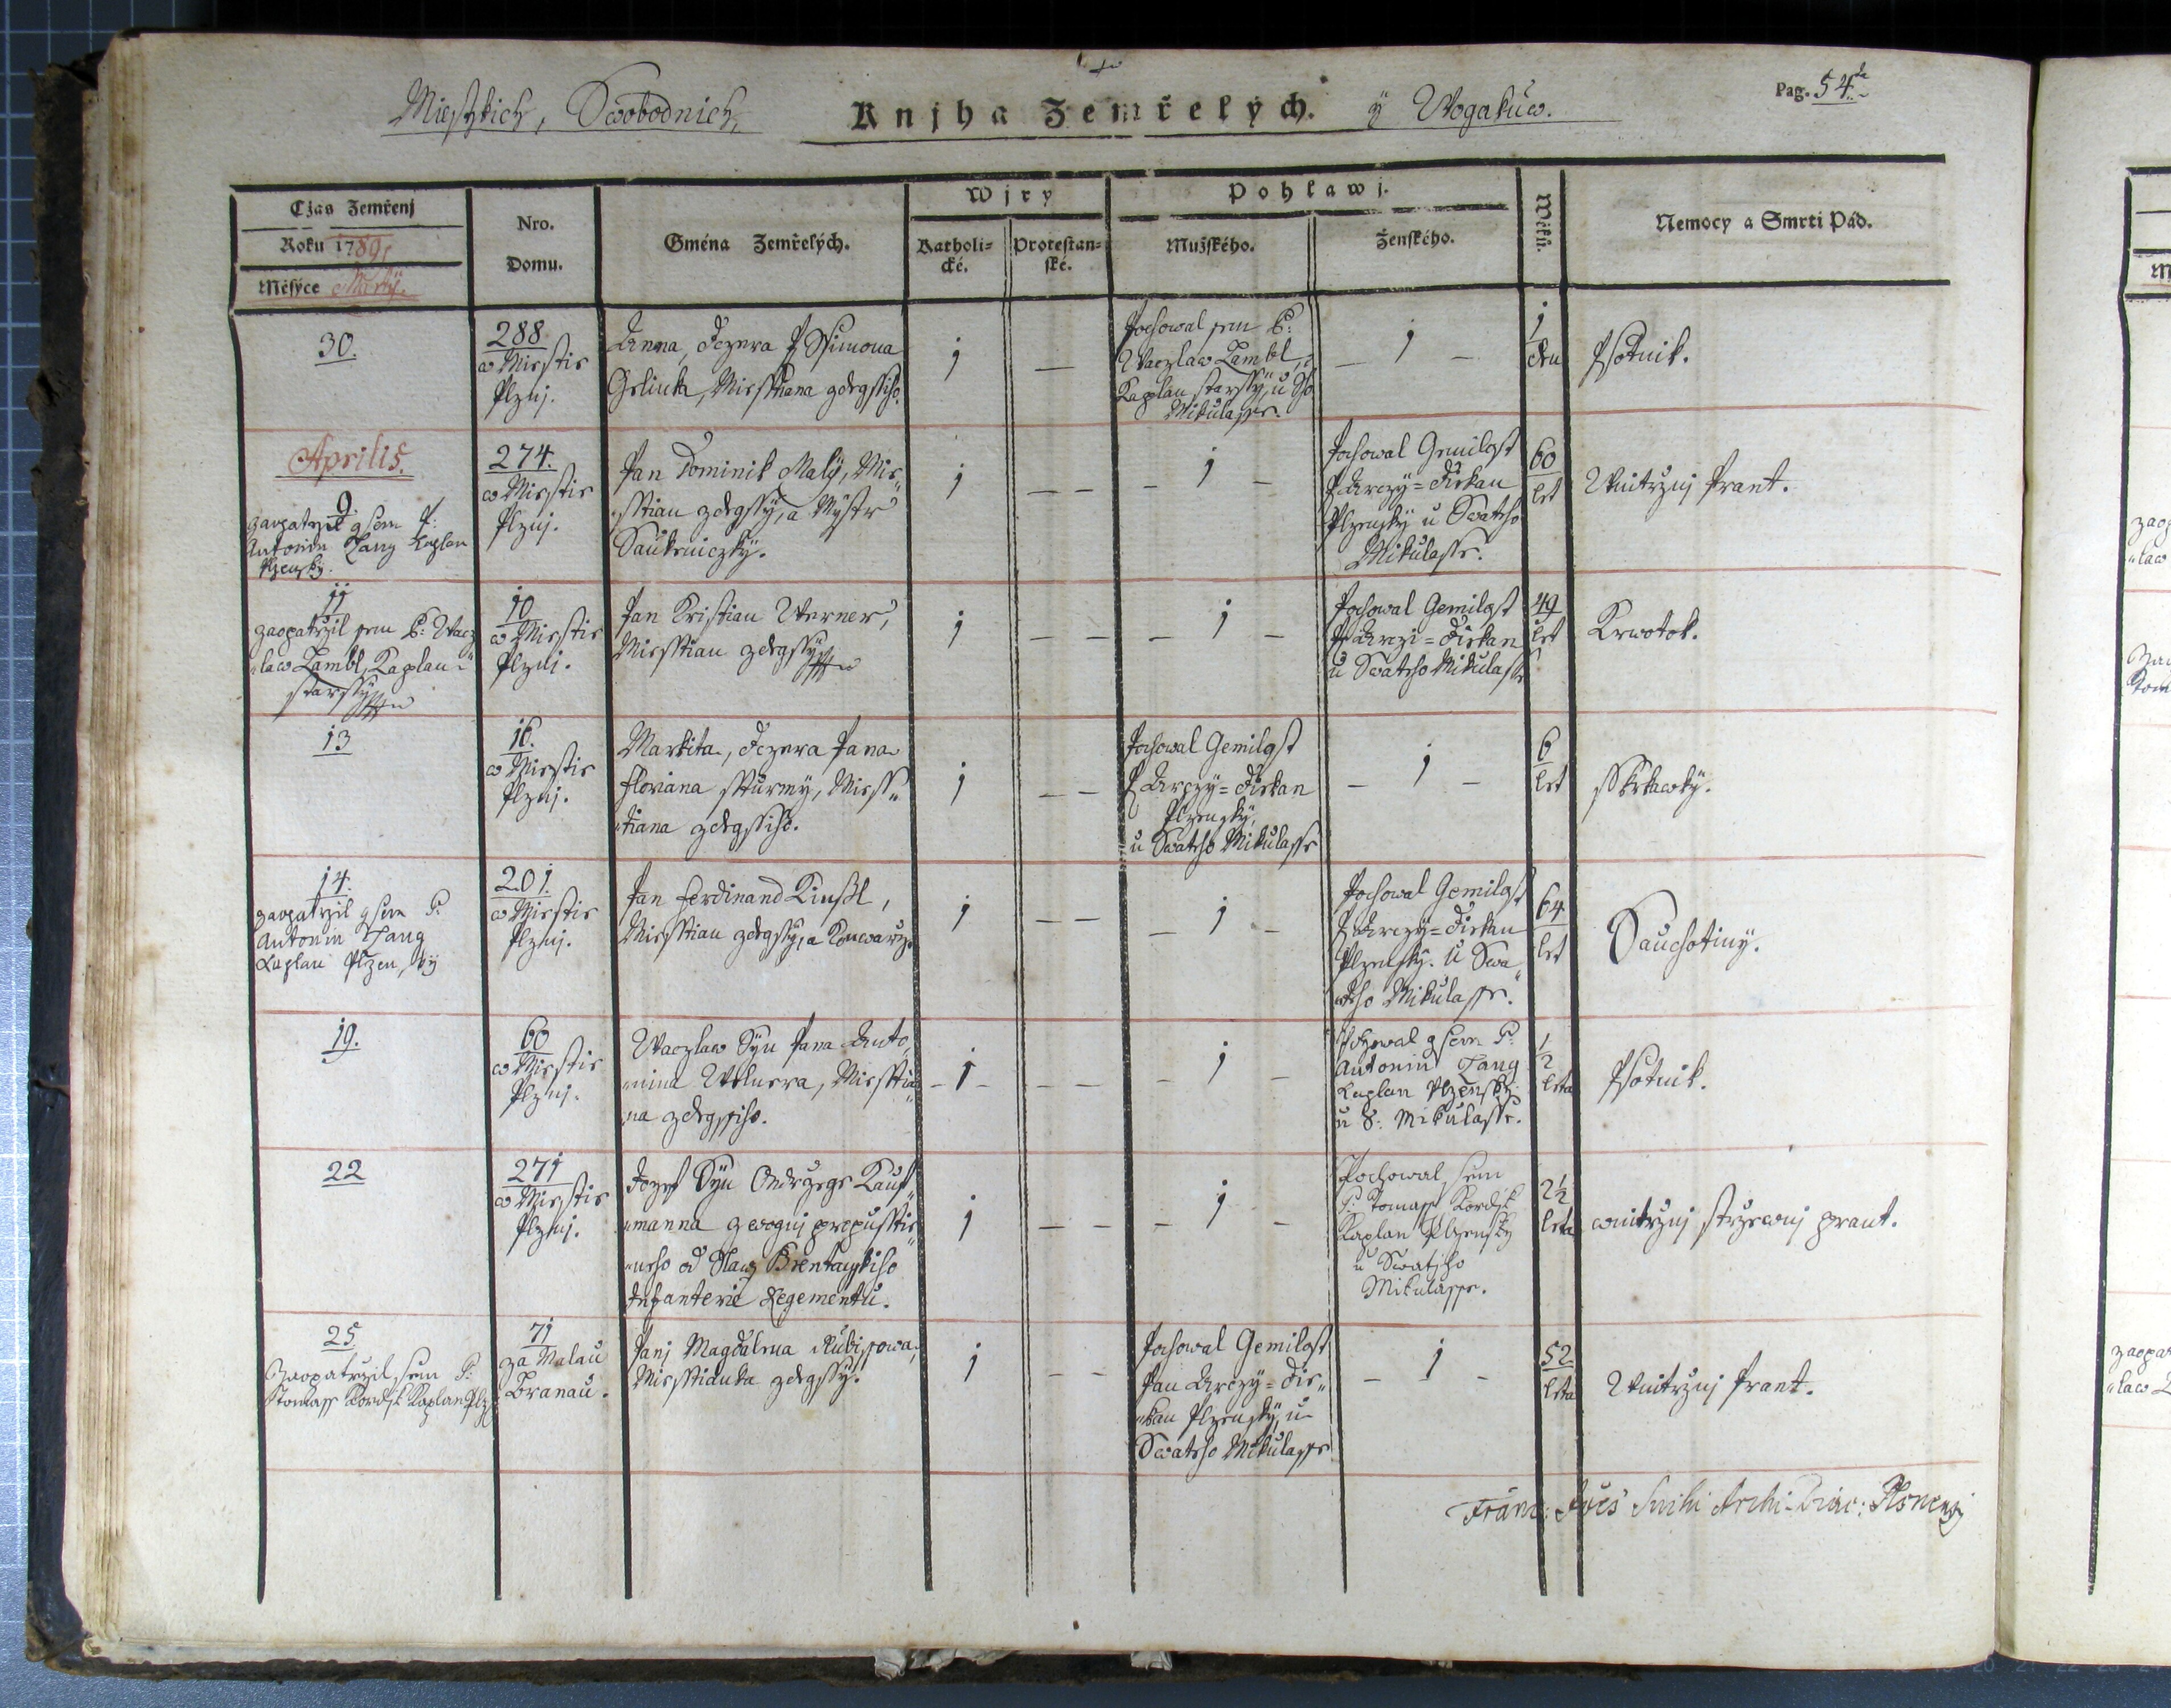 Miestskich, Swobodnich,
Knjha Zemřelých.
ÿ Wogakuw.
Pag. 54.
Czas Zemřenj
Roku 1789
Měsýce Martÿ.
Nro.
Domu.
Gména Zemřelých.
Wjry
Katholi=
cké.
Protestan=
ské.
Pohlawj.
Mužského.
Ženského.
Wěků.
Nemocy a Smrti Pád.
30.
288.
w Miestie
Plznj.
Anna, dczera P. Ssimona
Gelinka, Miesstiana zdegssiho.
1
—
Pochowal sem P:
Waczlaw Lambl,
Kaplan starssÿ, u S.
Mikulasse.
— 1 —
1
den
Psotnik.
Aprilis.
9.
zaopatrzil gsem P:
Antonin Lang Kaplan
Plzenskÿ.
274.
w Miestie
Plznj.
Pan Dominik Malÿ, Mie„
„sstian zdegssÿ, a Mÿstr
Saukeniczkÿ.
1
— —
— 1 —
Pochowal Gemilost
P. Arczÿ=Diekan
Plzenskÿ u Swateho
Mikulasse.
60
let
Wnitrznj Prant.
11
zaopatrzil sem P: Wacz
„law Lambl, Kaplan
starssÿ
10
w Miestie
Plznj.
Pan Kristian Werner,
Miesstian zdegssÿ
1
— —
— 1 —
Pochowal Gemilost
P. Arczi=Diekan
u Swateho Mikulasse
49
let
Krwotok.
13
16.
w Miestie
Plznj.
Markita, dczera Pana
Floriana Sturmÿ, Miess„
„tiana zdegssiho.
1
— —
Pochowal Gemilost
P. Arczÿ=Diekan
Plzenskÿ,
u Swateho Mikulasse
— 1 —
6
let
sskrkawkÿ.
14.
zaopatrzil gsem P.
Antonin Lang
Kaplan Plzenskÿ
201.
w Miestie
Plznj.
Pan Ferdinand Kinssl,
Miesstian zdegssÿ, a Konwarz.
1
— —
— 1 —
Pochowal Gemilost
P. Arczÿ=Diekan
Plzenskÿ. u Swa„
„teho Mikulasse.
64
let
Sauchotinÿ.
19.
60
w Miestie
Plznj.
Waczlaw Sÿn Pana Anto„
„nina Welnera, Miesstia„
„na zdegssiho.
— 1 —
— —
— 1 —
Pochowal gsem P.
Antonin Lang
Kaplan Plzenskÿ
u S: Mikulasse.
1/2
leta
Psotnik.
22
271
w Miestie
Plznj.
Jozef Sÿn Ondrzege Kauf„
„manna z wognj propusstie„
„neho od Slaw. Brentanskiho
Infanterie Regementu.
1
— —
— 1 —
Pochowal sem
P. Tomass Kordik
Kaplan Plzenskÿ
u Swatého
Mikulasse.
2 1/2
leta
wnitrznj strzewnj prant.
25
Zaopatrzil sem P:
Tomass Kordik Kaplan Plz.
71
za Malau
Branau.
Panj Magdalena Kubissowa,
Miesstianka zdegssÿ.
1
— —
Pochowal Gemilost
Pan Arczÿ=Die„
„kan Plzenskÿ, u
Swateho Mikulasse
— 1 —
52
leta
Wnitrznj Prant.
Archi-Diac: Plsnensis